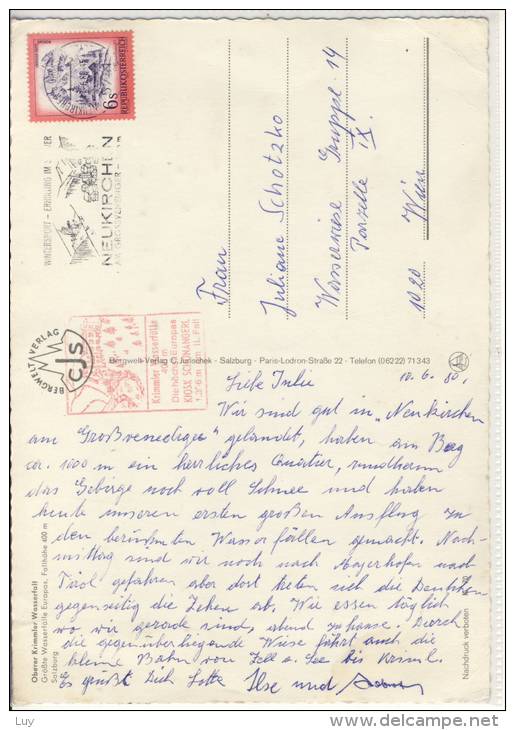 REPUBLIK ÖSTERREICH
6s
WINTERSPORT - ERHOLUNG IM
NEUKIRCHEN
AM GROSSVENEDIGER
Frau
Juliane Schotzko
Wasserwiese Gruppe 14
Parzelle IX.
1020 Wien
BERGWELT VERLAG
CJS
Krimmler Wasserfälle
400 m
Die höchst. Europas
KIOSK SCHÖNANGERL
Bergwelt-Verlag C. Jurischek - Salzburg - Paris-Lodron-Straße 22 - Telefon (06222) 71343
Liebe Julie 10. 6. 80.
Wir sind gut in „Neukirchen
am Großvenediger" gelandet, haben am Berg
ca. 1000 m ein herrliches Quartier, rundherum
das Gebirge noch voll Schnee und haben
heute unseren ersten großen Ausflug zu
den berühmten Wasserfällen gemacht. Nach-
mittag sind wir noch nach Mayerhofen nach
Tirol gefahren aber dort treten sich die Deutschen
gegenseitig die Zehen ab. Wir essen täglich
wo wir gerade sind, abend zuhause. Durch
die gegenüberliegende Wiese führt auch die
kleine Bahn von Zell a. See bis Kriml.
Es grüßt Dich Liebe Ilse und
Oberer Krimmler Wasserfall
Größte Wasserfälle Europas, Fallhöhe 400 m
Salzburg
Nachdruck verboten
Luy
www.delcampe.net